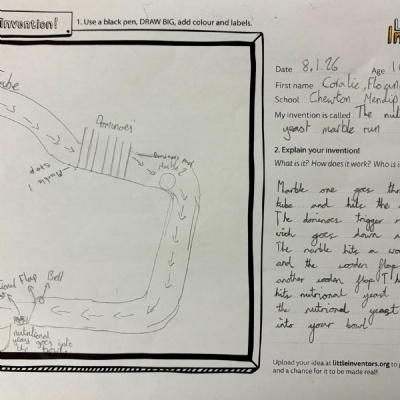 Invention!
1. Use a black pen, DRAW BIG, add colour and labels.
Tube
Dominoes
Marble 1
stops
Dominoes push
marble 2
Flap
Bell
nutritional
yeast goes into
the bowl
Date 8.1.26 Age
First name Coralie, Flo
School Chewton Mendip
My invention is called The
yeast marble run
2. Explain your invention!
What is it? How does it work? Who is i
Marble one goes thr
tube and hits the
The dominoes trigger
wich goes down a
The marble hits a wo
and the wooden flap
another wooden flap
hits nutrional yeast
the nutrional yeast
into your bowl
Upload your idea at littleinventors.org to
and a chance for it to be made real!